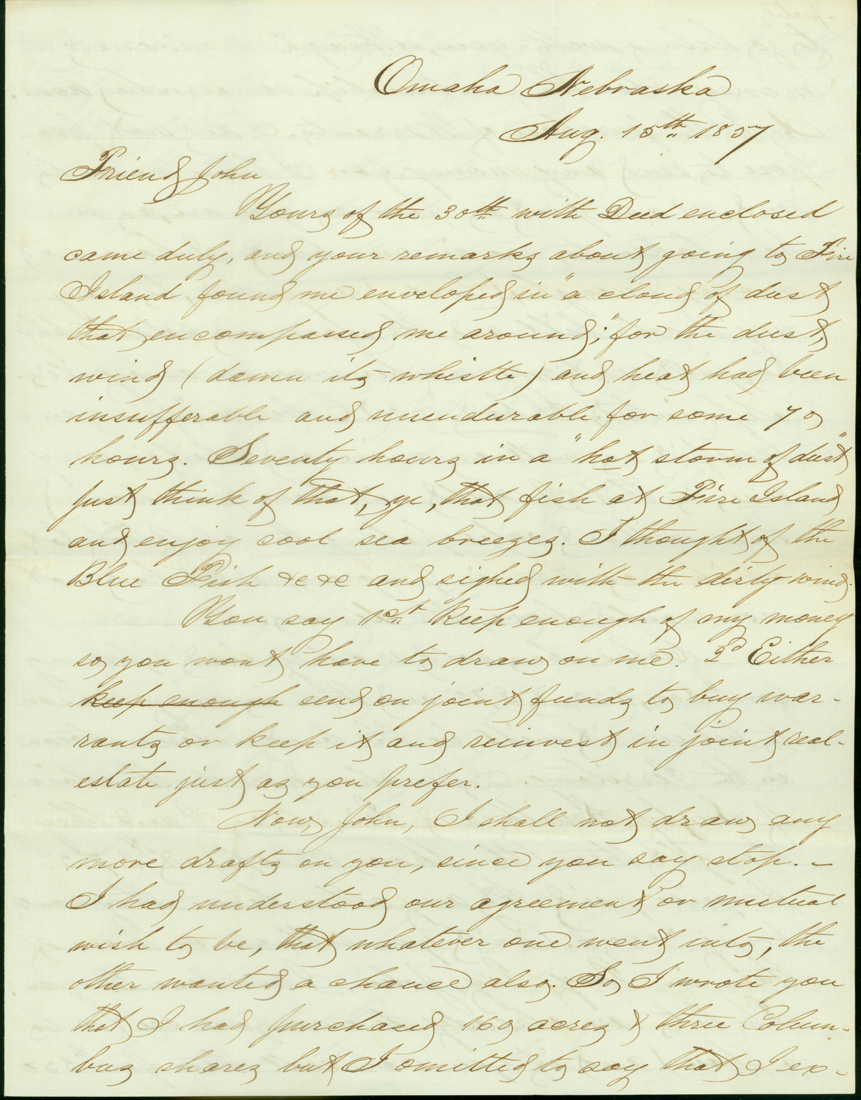 Omaha Nebraska
Aug. 15th 1857
Friend John
Yours of the 30th with Deed enclosed
came duly, and your remarks about going to Fire
Island found me enveloped in "a cloud of dust
that encompassed me around;" for the dust,
wind (damn its whistle) and heat had been
insufferable and unendurable for some 70
hours. Seventy hours in a "hot storm of dust"
just think of that, ye, that fish at Fire Island
and enjoy cool sea breezes. I thought of the
Blue Fish &c &c and sighed with the dirty wind.
You say 1st. Keep enough of my money
so you wont have to draw on me. 2d Either
keep enough send on joint funds to buy war-
rants or keep it and reinvest in joint real-
estate just as you prefer.
Now, John, I shall not draw any
more drafts on you, since you say stop. –
I had understood our agreement or mutual
wish to be, that whatever one went into, the
other wanted a chance also. So I wrote you
that I had purchased 160 acres & three Colum-
bus shares but I omitted to say that I ex-